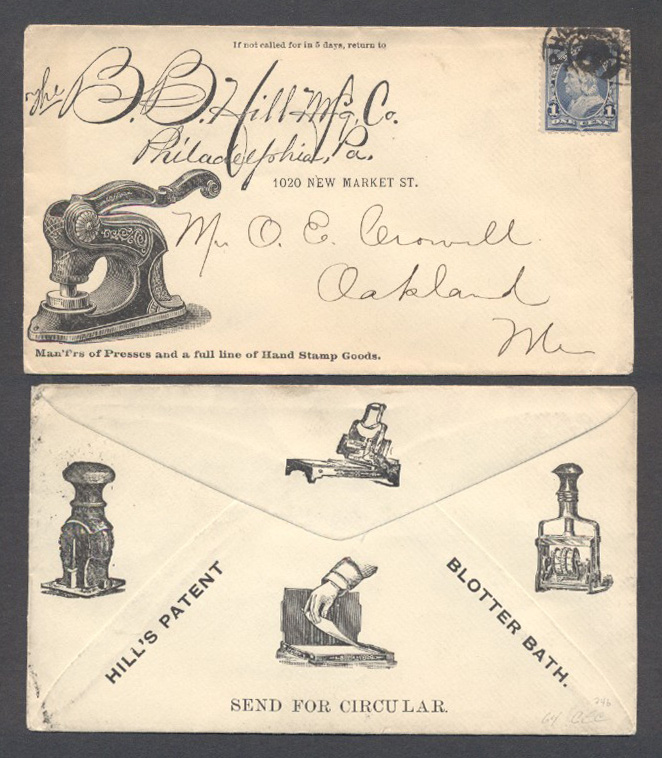 If not called for in 5 days, return to
The B. B. Hill Mfg. Co.
Philadelphia, Pa.
1020 NEW MARKET ST.
1 1
ONE CENT
Mr O. E. Crowell
Oakland
Me
Man'f'rs of Presses and a full line of Hand Stamp Goods.
HILL'S PATENT
BLOTTER BATH.
SEND FOR CIRCULAR.